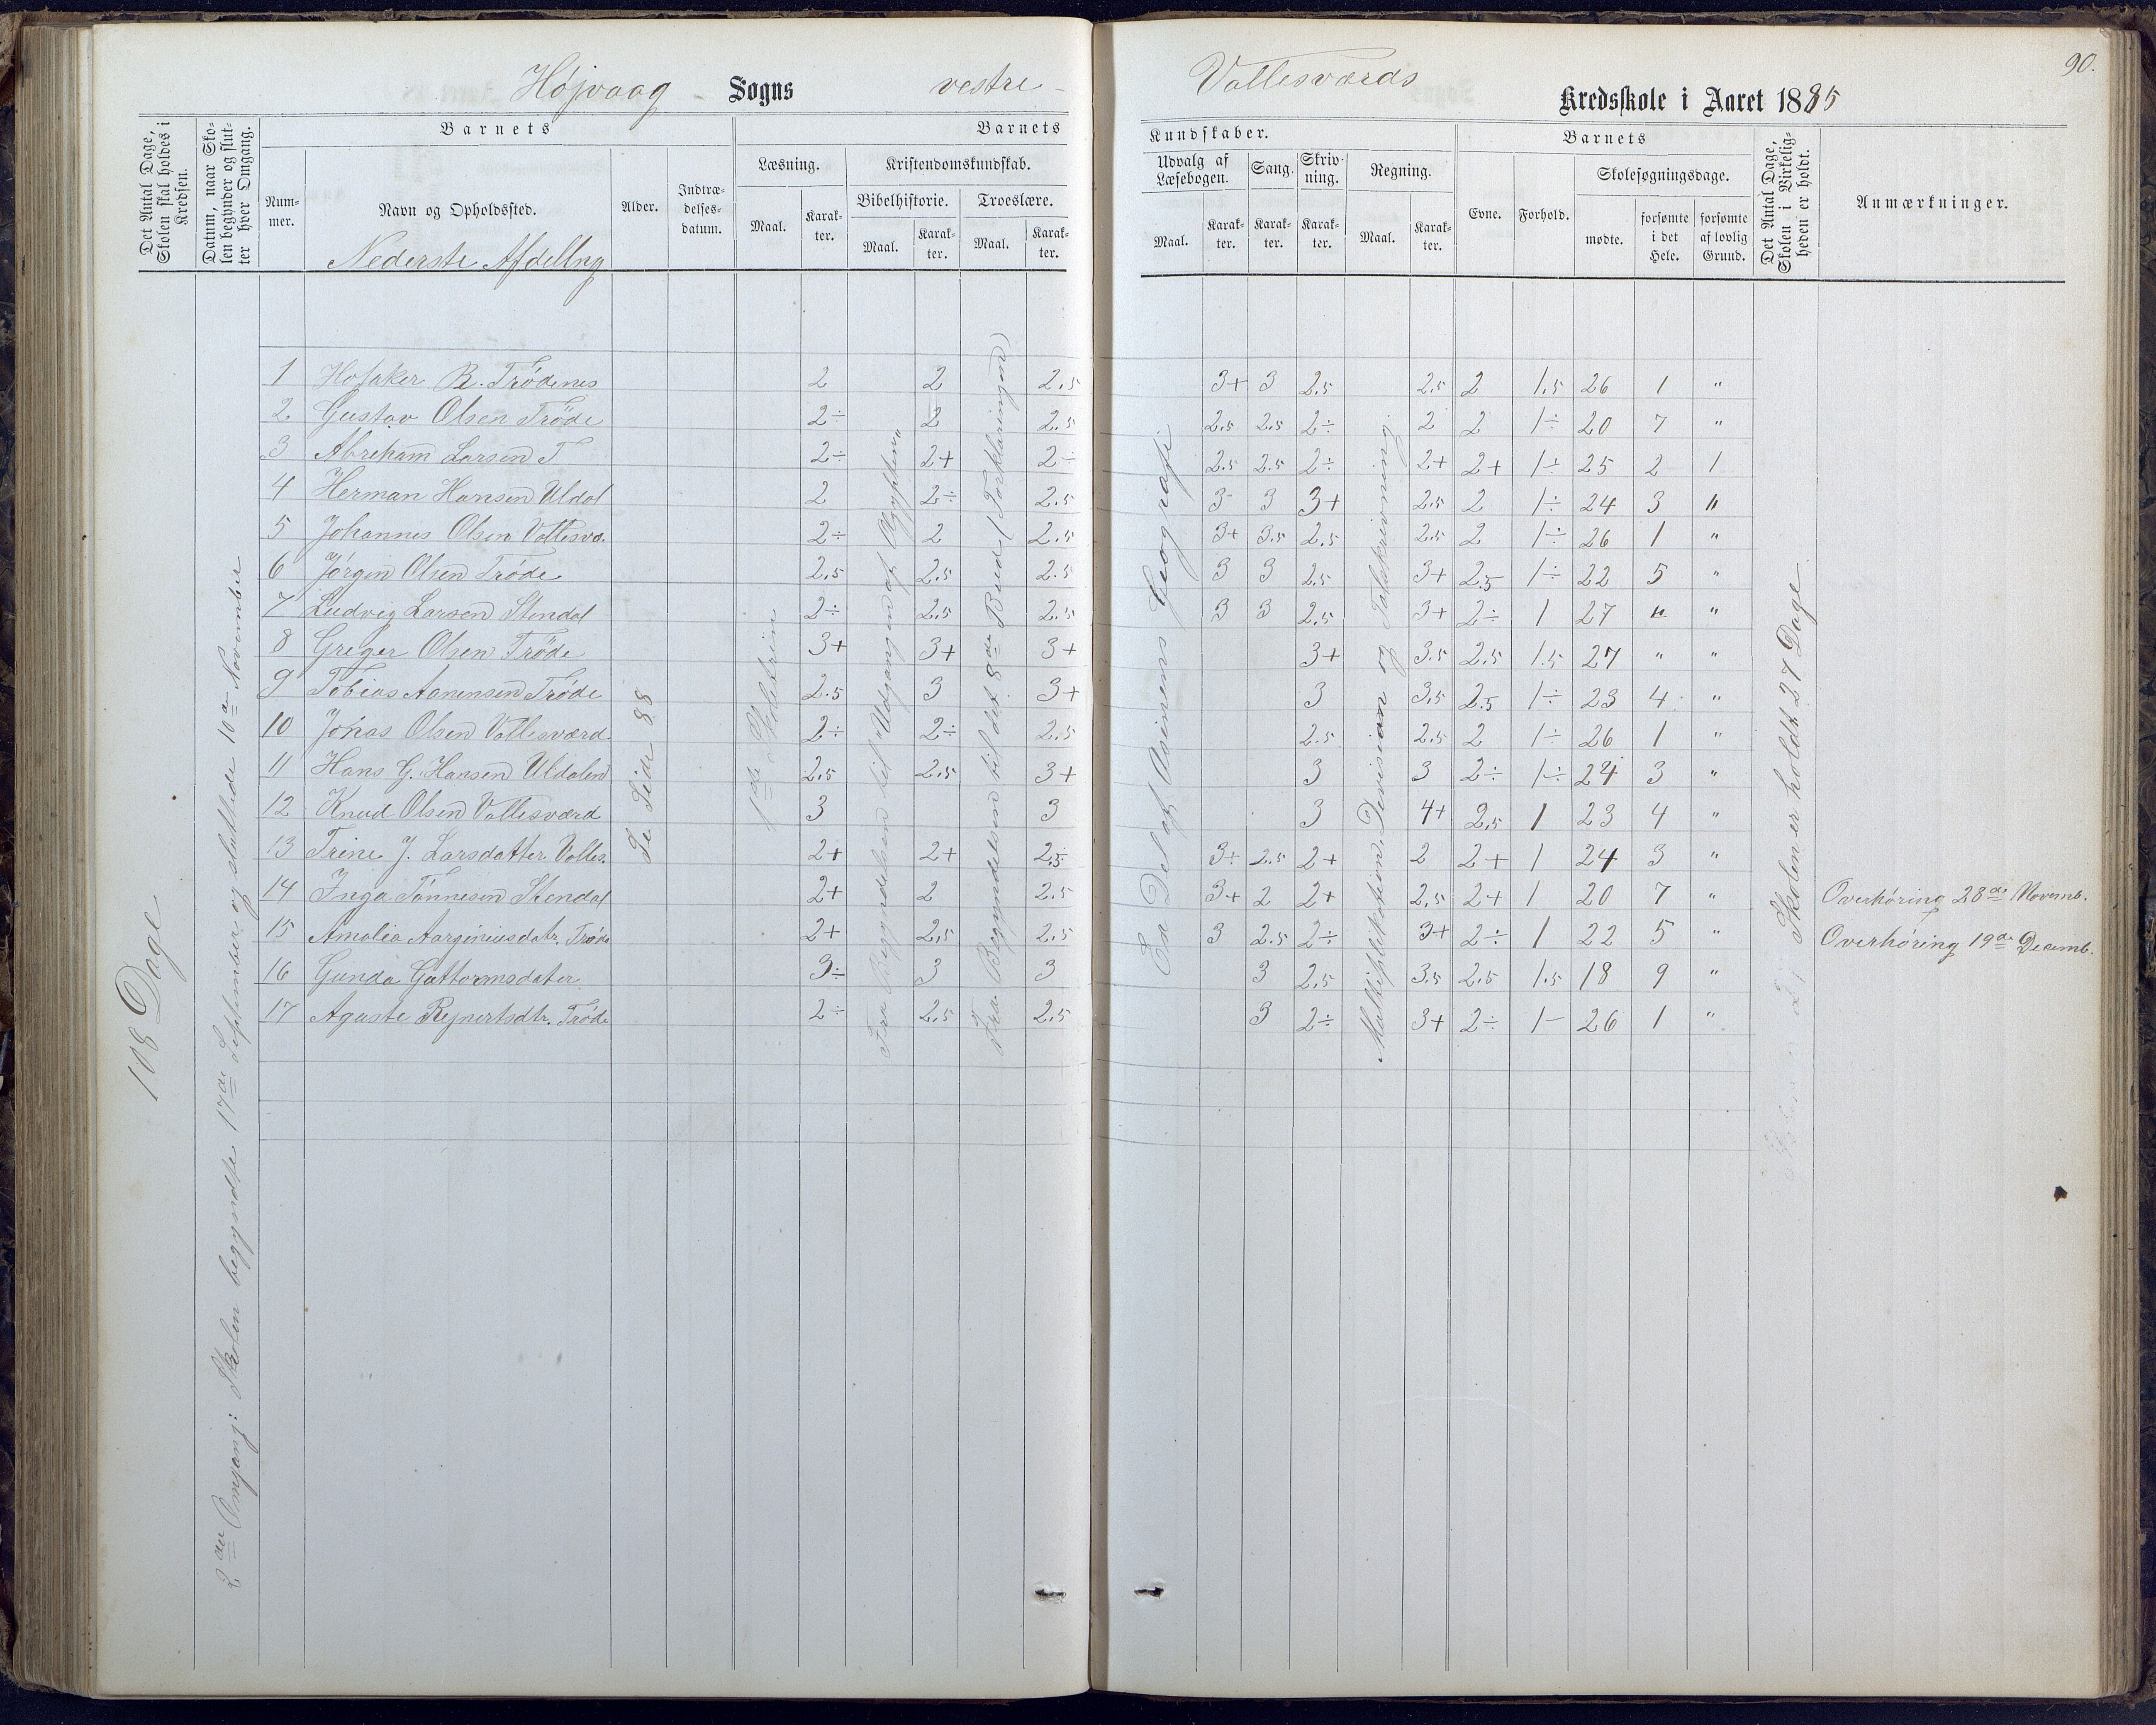 Højvaag - Sogns vestre -
Vallesværds Kredsskole i Aaret 1885
90.
Det Antal Dage, Skolen skal holdes i Kredsen.
Datum, naar Skolen begynder og slutter hver Omgang.
Barnets
Nummer.
Navn og Opholdssted.
Nederste Afdeling
Alder.
Indtrædelsesdatum.
Barnets
Læsning.
Maal.
Karakter.
Kristendomskundskab.
Bibelhistorie.
Maal.
Karakter.
Troeslære.
Maal.
Karakter.
Kundskaber.
Udvalg af Læsebogen.
Maal.
Karakter.
Sang.
Karakter.
Skrivning.
Karakter.
Regning.
Maal.
Karakter.
Barnets
Evne.
Forhold.
Skolesøgningsdage.
mødte.
forsømte i det Hele.
forsømte af lovlig Grund.
Det Antal Dage, Skolen i Virkeligheden er holdt.
Anmærkninger.
108 Dage
2den Omgang: Skolen begyndte 17de September og sluttede 10de November
Se Side 88
Fra Begyndelsen til Udgangen af Ægypten
Fra Begyndelsen til det 8de Bud (Forklaringen)
En Del af Geografi
Multiplikation, Division og Talskrivning.
Skolen er holdt 27 Dage
1 Hofaker R. Trødenes 2 2 2.5 3+ 3 2.5 2.5 2 1.5 26 1 "
2 Gustav Olsen Trøde 2÷ 2 2.5 2.5 2.5 2÷ 2 2 1÷ 20 7 "
3 Abreham Larsen T 2÷ 2+ 2÷ 2.5 2.5 2÷ 2+ 2+ 1÷ 25 2 1
4 Herman Hansen Uldal 2 2÷ 2.5 3- 3 3+ 2.5 2 1÷ 24 3 "
5 Johannes Olsen Vallesvæ. 2÷ 2 2.5 3+ 3.5 2.5 2.5 2 1÷ 26 1 "
6 Jørgen Olsen Trøde 2.5 2.5 2.5 3 3 2.5 3+ 2.5 1÷ 22 5 "
7 Ludvig Larsen Stendal 2÷ 2.5 2.5 3 3 2.5 3+ 2÷ 1 27 " "
8 Greger Olsen Trøde 3+ 3+ 3+ 3+ 3.5 2.5 1.5 27 " "
9 Tobias Aanensen Trøde 2.5 3 3+ 3 3.5 2.5 1÷ 23 4 "
10 Jonas Olsen Vallesværd 2÷ 2÷ 2.5 2.5 2.5 2 1÷ 26 1 "
11 Hans G. Hansen Uldalen 2.5 2.5 3+ 3 3 2÷ 1÷ 24 3 "
12 Knud Olsen Vallesværd 3 3 3 4+ 2.5 1 23 4 "
13 Trine J. Larsdatter Valles. 2+ 2+ 2.5 3+ 2.5 2+ 2 2+ 1 24 3 "
14 Inga Tønnesen Stendal 2+ 2 2.5 3+ 2 2+ 2.5 2+ 1 20 7 " Overhøring 28de Novemb.
15 Amalia Aargeniusdatr. Trøde 2+ 2.5 2.5 3 2.5 2÷ 3+ 2÷ 1 22 5 " Overhøring 19de Decemb.
16 Gunda Guttormsdater 3÷ 3 3 3 2.5 3.5 2.5 1.5 18 9 "
17 Aguste Rejnertsdtr. Trøde 2÷ 2.5 2.5 3 2÷ 3+ 2÷ 1- 26 1 "